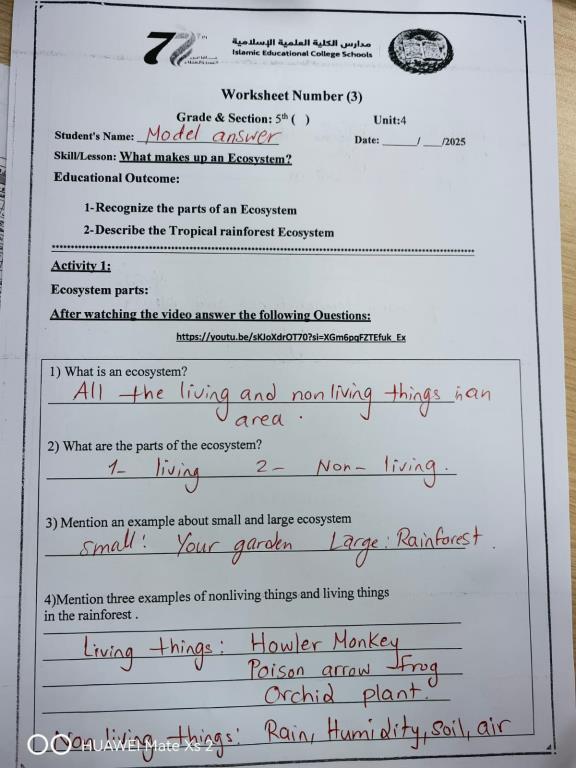 7
TH
مدارس الكلية العلمية الإسلامية
Islamic Educational College Schools
Worksheet Number (3)
Grade & Section: 5th ( ) Unit:4
Student's Name: Model answer Date: ______/ ___/2025
Skill/Lesson: What makes up an Ecosystem?
Educational Outcome:
1-Recognize the parts of an Ecosystem
2-Describe the Tropical rainforest Ecosystem
Activity 1:
Ecosystem parts:
After watching the video answer the following Questions:
https://youtu.be/sKJoXdrOT70?si=XGm6pqFZTEfuk_Ex
1) What is an ecosystem?
All the living and non living things in an
area .
2) What are the parts of the ecosystem?
1- living 2- Non- living.
3) Mention an example about small and large ecosystem
small: Your garden Large: Rainforest.
4)Mention three examples of nonliving things and living things
in the rainforest .
Living things: Howler Monkey
Poison arrow frog
Orchid plant.
Non living things: Rain, Humidity, Soil, air
HUAWEI Mate Xs 2